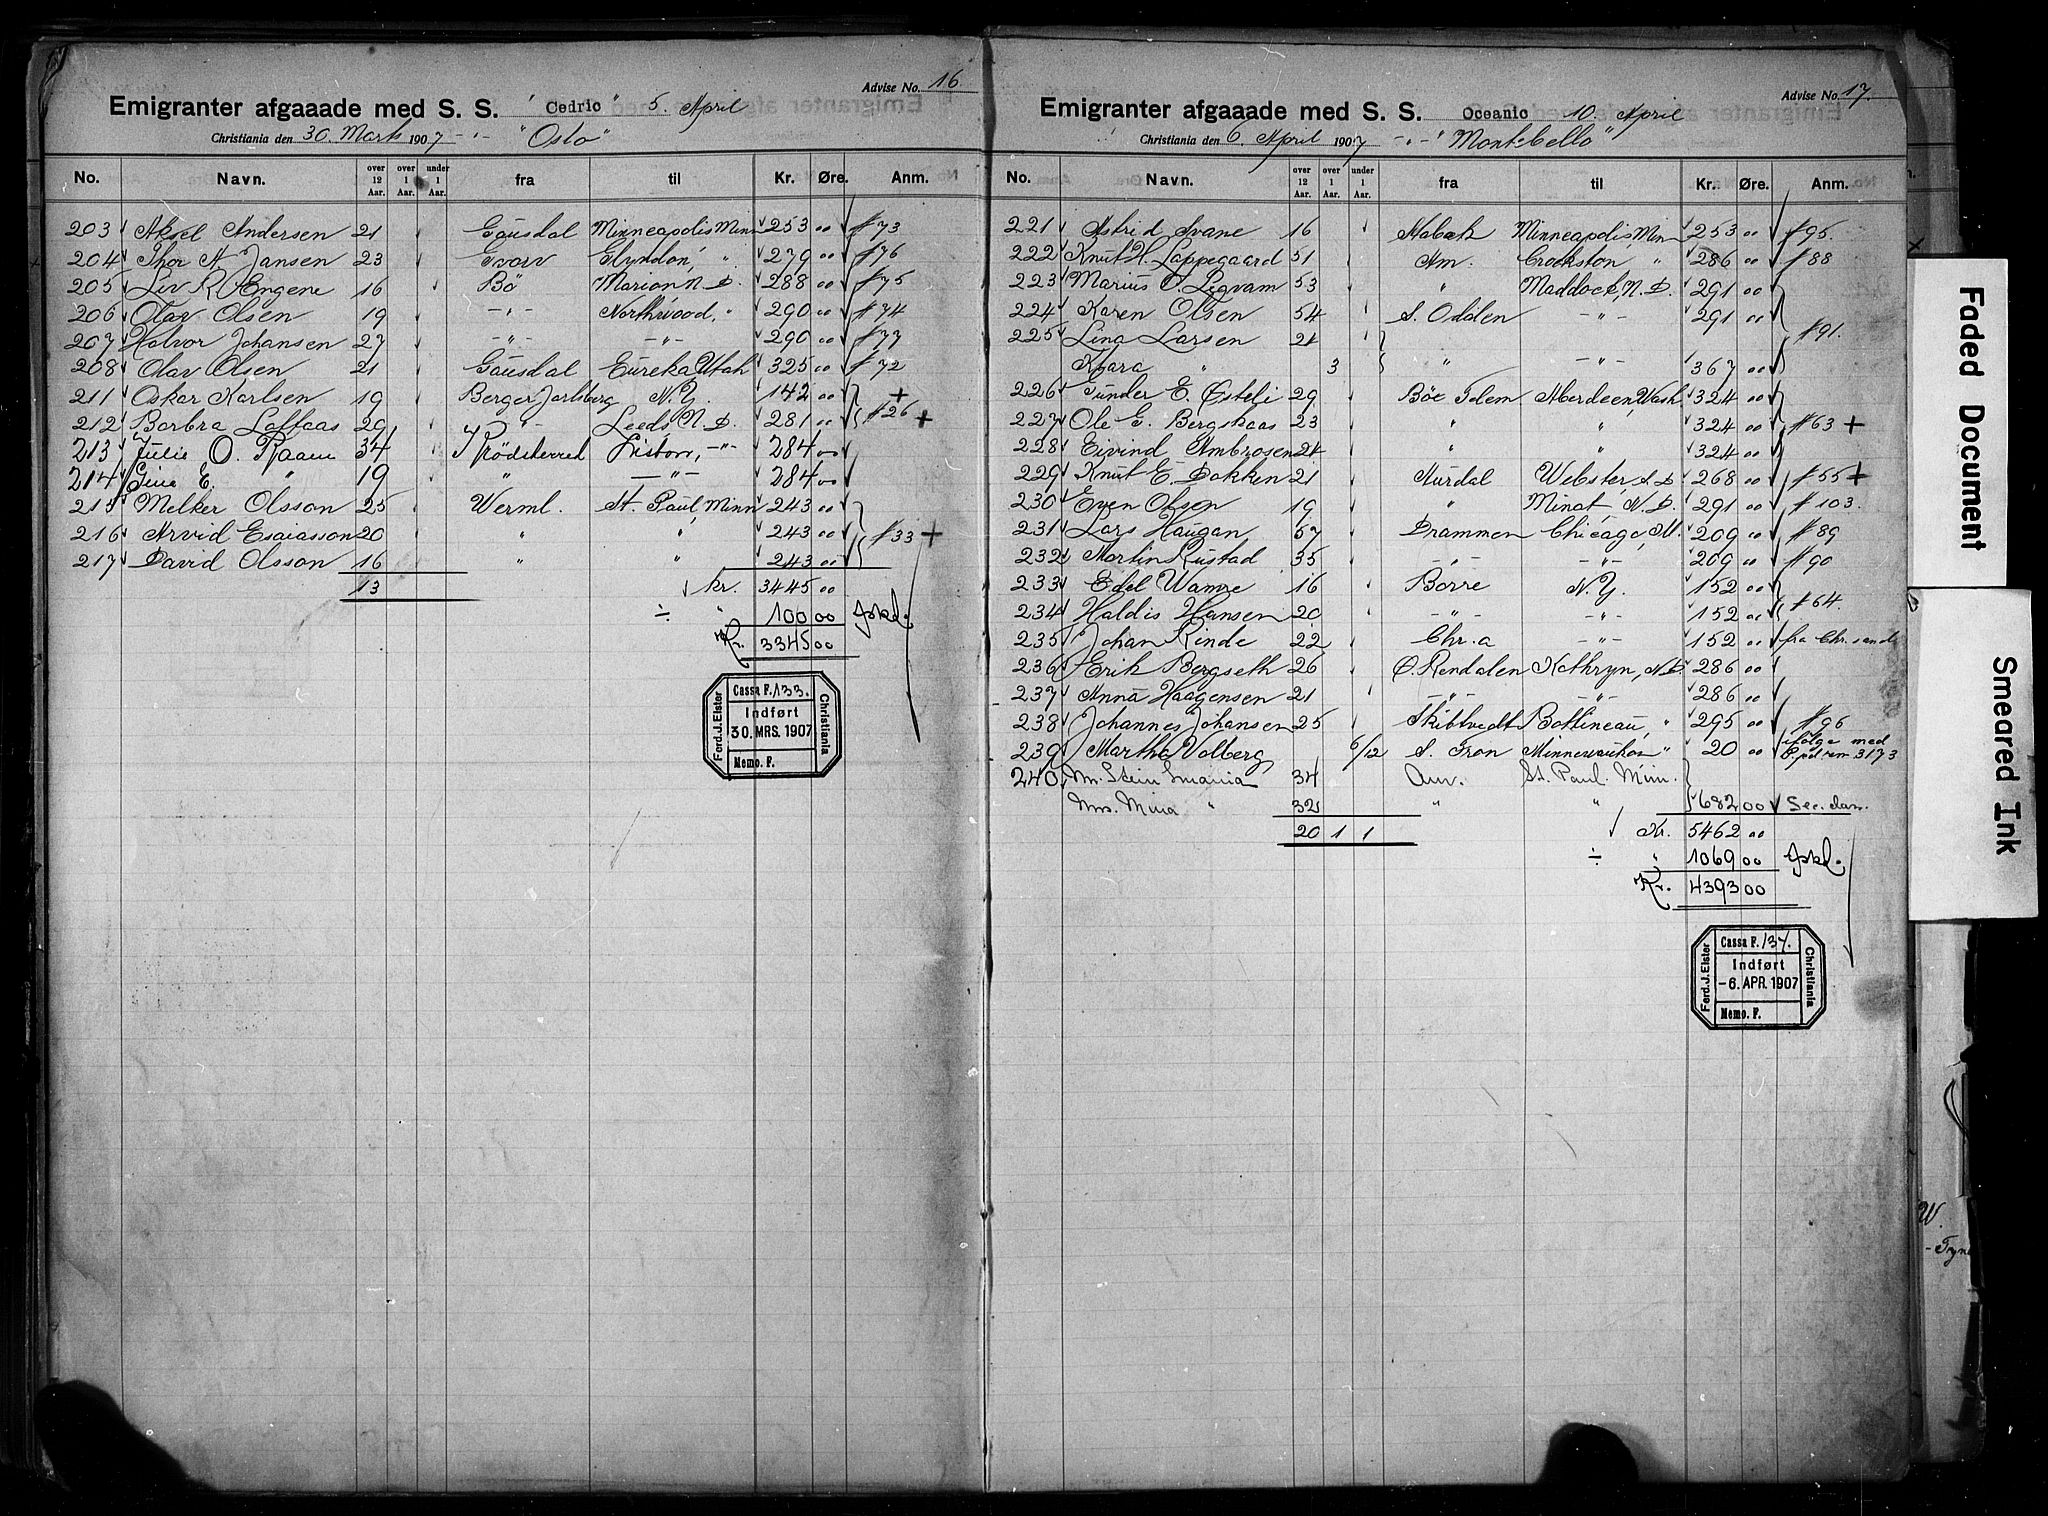 Advise No. 16
Emigranter afgaaade med S. S. "Cedric" 5. April
Christiania den 30. Marts 1907 -"- "Oslo"
No. Navn. over 12 Aar. over 1 Aar. under 1 Aar. fra til Kr. Øre. Anm.
203 Aksel Andersen 21 Gausdal Minneapolis Minn 253 00 # 73
204 Thor A Jansen 23 Glyndon, " 279 00 # 76
205 Liv R Engene 16 Bö Marion, N. D. 288 00 # 75
206 Olav Olsen 19 -"- Northwood, " 290 00 # 74
207 Halvor Johansen 27 -"- -"- 290 00 # 77
208 Olav Olsen 21 Gausdal Eureka Utah 325 00 # 72
211 Oskar Karlsen 19 Berger Jarlsberg N. Y. 142 00 +
212 Borbra Loftaas 29 " - Leeds N. D. 281 00 # 26 +
213 Julie O. Raaen 34 Krödsherred -"- 284 00
214 Gina E. " 19 " -"- 284 00
215 Melker Olsson 25 Werml. St. Paul, Minn 243 00
216 Arvid Esaiasson 20 " " 243 00 # 33 +
217 David Olsson 16 " " 243 00
13 kr. 3445 00
÷ " 100 00 Fskd.
Kr. 3345 00
Ferd. J. Elster
Cassa F. 133.
Indført
30. MRS. 1907
Memo. F.
Christiania
Advise No. 17.
Emigranter afgaaade med S. S. Oceanic 10. April
Christiania den 6. April 1907 -"- "Montebello"
No. Navn. over 12 Aar. over 1 Aar. under 1 Aar. fra til Kr. Øre. Anm.
221 Astrid Svane 16 Minneapolis Minn 253 00 # 95.
222 Knut H. Lappegaard 51 Am. Crookston " 286 00 # 88
223 Marius O. 53 " Maddock, N. D. 291 00
224 Karen Olsen 54 S. Odden -"- 291 00
225 Lina Larsen 21 # 91.
Klara " 3 " -"- 367 00
226 Gunder E. Østeli 29 Böe Telem Aberdeen, Wash 324 00
227 Ole G. Bergskaas 23 " " 324 00 # 63 +
228 Eivind Ambrosen 24 " " 324 00
229 Knut E. Dokken 21 Aurdal Webster, S. D 268 00 # 55 +
230 Even Olsen 19 " Minot N. D. 291 00 # 103.
231 Lars Haugan 57 Drammen Chicago, Ill. 209 00 # 89
232 Martin Rustad 35 -"- -"- 209 00 # 90
233 Edel Wamre 16 Borre N. Y. 152 00
234 Haldis Hansen 20 -"- -"- 152 00 # 64.
235 Johan Rinde 22 Chr.a -"- 152 00 fra Chr.sand
236 Erik Bergseth 26 Ø. Rendalen Kathryn, N. D. 286 00
237 Anna Haagensen 21 -"- -"- 286 00
238 Johannes Johansen 25 Skibtvedt Bottineau, " 295 00 # 96
239 Martha Volberg 6/12 S. Fron Minnewaukon " 20 00 ifølge med 3173
240 Mr. Stein 34 Am. St. Paul. Minn.
Mrs. Mina " 32 " " 682 00
20 1 1 Kr. 5462 00
÷ " 1069 00 Fskd.
Kr. 4393 00
Ferd. J. Elster
Cassa F. 134.
Indført
-6. APR. 1907
Memo. F.
Christiania
Faded Document
Smeared Ink